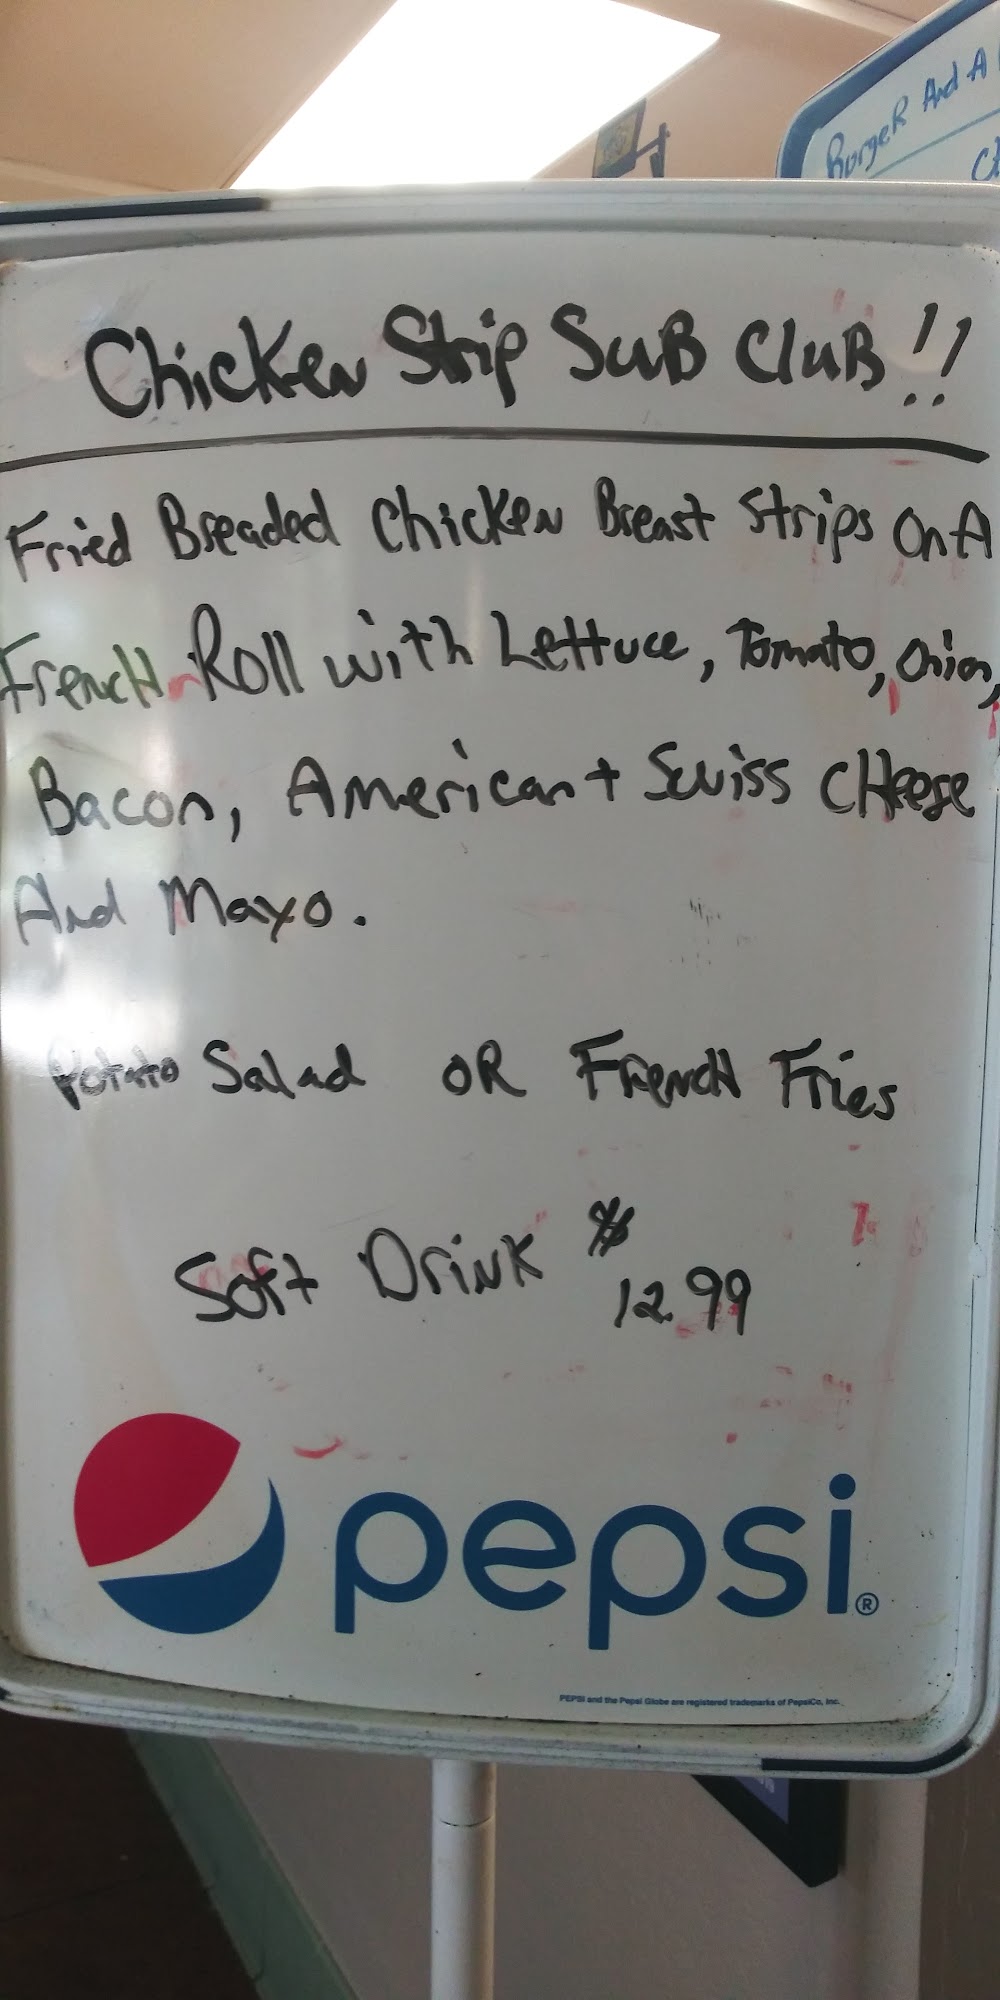 Burger And A
Chicken Strip Sub Club!!
Fried Breaded Chicken Breast Strips On A
French Roll with Lettuce, Tomato, Onion,
Bacon, American + Swiss Cheese
And Mayo.
Potato Salad OR French Fries
Soft Drink $
12.99
pepsi®
PEPSI and the Pepsi Globe are registered trademarks of PepsiCo, Inc.